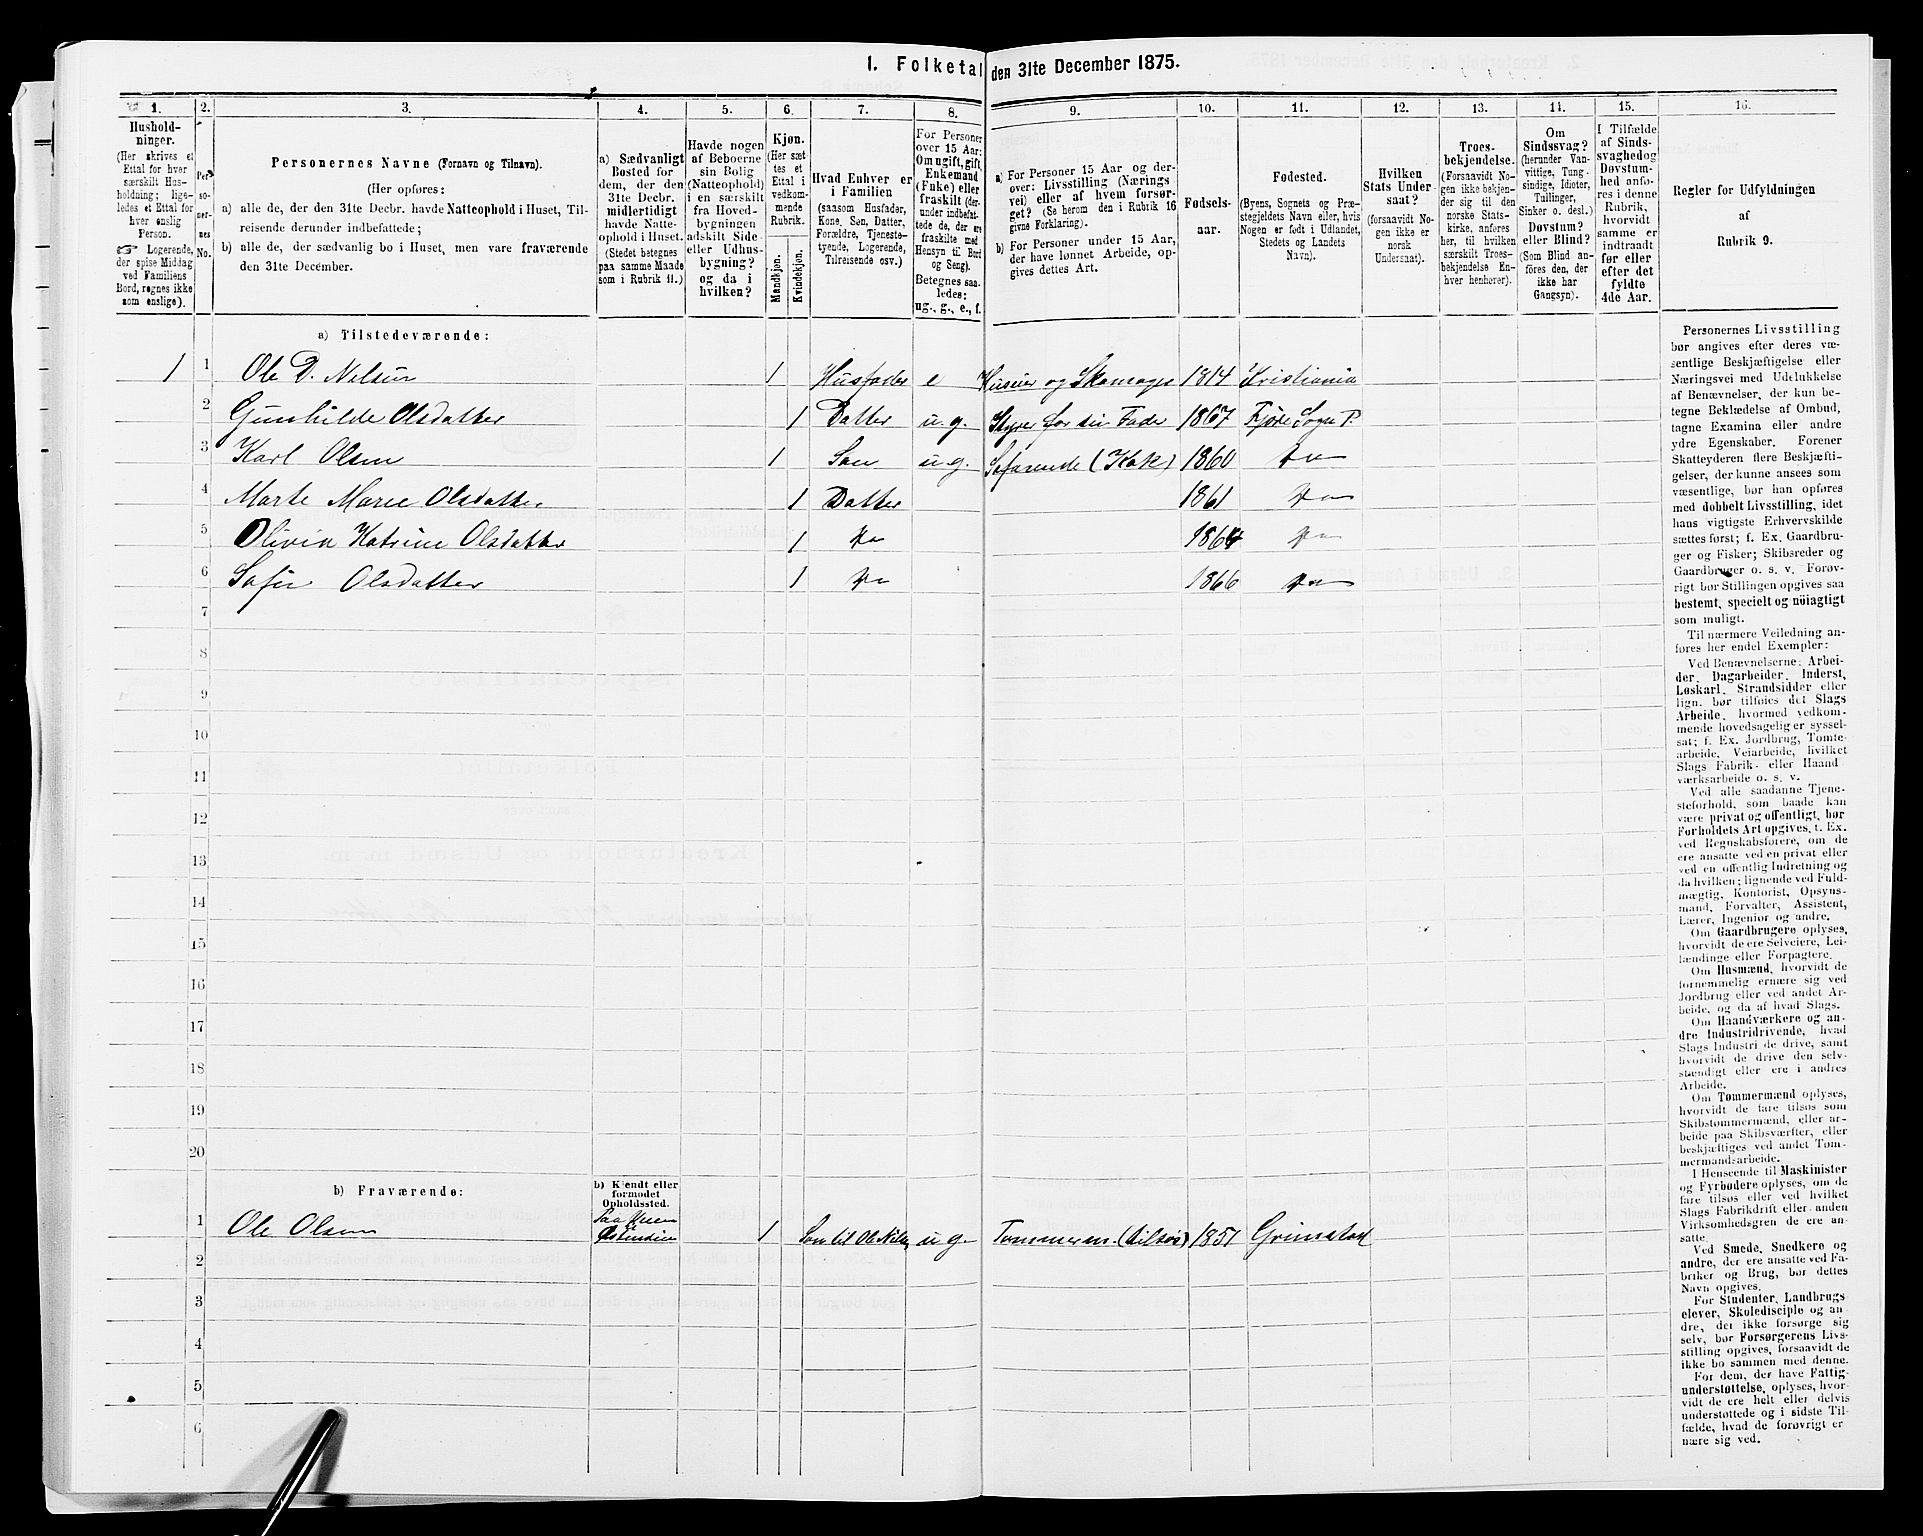 I. Folketal den 31te December 1875.
1. 2. 3. 4. 5. 6. 7. 8. 9. 10. 11. 12. 13. 14. 15. 16.
Hushold-
ninger.
(Her skrives et
Ettal for hver
særskilt Hus-
holdning; lige-
ledes et Ettal for
hver enslig
Person.
☞ Logerende,
der spise Middag
ved Familiens
Bord, regnes ikke
som enslige).
Per-
so-
ner-
nes
No.
Personernes Navne (Fornavn og Tilnavn).
(Her opføres:
a) alle de, der den 31te Decbr. havde Natteophold i Huset, Til-
reisende derunder indbefattede;
b) alle de, der sædvanlig bo i Huset, men vare fraværende
den 31te December.
a) Sædvanligt
Bosted for
dem, der den
31te Decbr.
midlertidigt
havde Natte-
ophold i Huset.
(Stedet betegnes
paa samme Maade
som i Rubrik 11.)
Havde nogen
af Beboerne
sin Bolig
(Natteophold)
i en særskilt
fra Hoved-
bygningen
adskilt Side-
eller Udhus-
bygning?
og da i
hvilken?
Kjøn.
(Her sæt-
tes et
Ettal i
vedkom-
mende
Rubrik.
Mandkjøn.
Kvindekjøn.
Hvad Enhver er
i Familien
(saasom Husfader,
Kone, Søn, Datter,
Forældre, Tjeneste-
tyende, Logerende,
Tilreisende osv.)
For Personer
over 15 Aar:
Om ugift, gift,
Enkemand
(Enke) eller
fraskilt (der-
under indbefat-
tede de, der ere
fraskilte med
Hensyn til Bord
og Seng).
Betegnes saa-
ledes:
ug., g., e., f.
a) For Personer 15 Aar og der-
over: Livsstilling (Nærings-
vei) eller af hvem forsør-
get? (Se herom den i Rubrik 16
givne Forklaring).
b) For Personer under 15 Aar,
der have lønnet Arbeide, op-
gives dettes Art.
Fødsels-
aar.
Fødested.
(Byens, Sognets og Præ-
stegjeldets Navn eller, hvis
Nogen er født i Udlandet,
Stedets og Landets
Navn).
Hvilken
Stats Under-
saat?
(forsaavidt No-
gen ikke er
norsk
Undersaat).
Troes-
bekjendelse.
(Forsaavidt No-
gen ikke bekjen-
der sig til den
norske Stats-
kirke, anføres
her, til hvilken
særskilt Troes-
bekjendelse En-
hver henhører).
Om
Sindssvag?
(herunder Van-
vittige, Tung-
sindige, Idioter,
Tullinger,
Sinker o. desl.)
Døvstum?
eller Blind?
(Som Blind an-
føres den, der
ikke har
Gangsyn).
I Tilfælde
af Sinds-
svaghed og
Døvstum-
hed anfø-
res i denne
Rubrik,
hvorvidt
samme er
indtraadt
før eller
efter det
fyldte
4de Aar.
Regler for Udfyldningen
af
Rubrik 9.
a) Tilstedeværende:
1 1 Ole D. Nelsen 1 Husfader e Huseier og Skomager 1814 Kristiania
2 Gunhilde Olsdatter 1 Datter u.g. Styrer for sin Fader 1867 Fjøre Sogn P.
3 Karl Olsen 1 Søn u g. Søfarende (Kok) 1860 Do
4 Marte Marie Olsdatter 1 Datter 1861 Do
5 Olivia Katrine Olsdatter 1 Do 1864 Do
6 Sofie Olsdatter 1 Do 1866 Do
7
8
9
10
11
12
13
14
15
16
17
18
19
20
b) Fraværende:
b) Kjendt eller
formodet
Opholdssted.
1 Ole Olsen Paa Veien Ostindien 1 Søn til Ole Nilsen u g. Tømmerm. (tilsøs) 1851 Grimstad
2
3
4
5
6
Personernes Livsstilling
bør angives efter deres væ-
sentlige Beskjæftigelse eller
Næringsvei med Udelukkelse
af Benævnelser, der kun be-
tegne Beklædelse af Ombud,
tagne Examina eller andre
ydre Egenskaber. Forener
Skatteyderen flere Beskjæfti-
gelser, der kunne ansees som
væsentlige, bør han opføres
med dobbelt Livsstilling, idet
hans vigtigste Erhvervskilde
sættes først; f. Ex. Gaardbru-
ger og Fisker; Skibsreder og
Gaardbruger o. s. v. Forøv-
rigt bør Stillingen opgives saa
bestemt, specielt og nöiagtigt
som muligt.
Til nærmere Veiledning an-
føres her endel Exempler:
Ved Benævnelserne: Arbei-
der, Dagarbeider, Inderst,
Løskarl, Strandsidder eller
lign. bør tilføies det Slags
Arbeide, hvormed vedkom-
mende hovedsagelig er syssel-
sat; f. Ex. Jordbrug, Tomte-
arbeide, Veiarbeide, hvilket
Slags Fabrik- eller Haand-
værksarbeide o. s. v.
Ved alle saadanne Tjene-
steforhold, som baade kan
være privat og offentligt, bør
Forholdets Art opgives, t. Ex.
ved Regnskabsførere, om de
ere ansatte ved en privat eller
ved en offentlig Indretning og
da hvilken; lignende ved Fuld-
mægtig, Kontorist, Opsyns-
mand, Forvalter, Assistent,
Lærer, Ingeniør og andre.
Om Gaardbrugere oplyses,
hvorvidt de ere Selveiere, Lei-
lændinge eller Forpagtere.
Om Husmænd, hvorvidt de
fornemmelig ernære sig ved
Jordbrug eller ved andet Ar-
beide, og da af hvad Slags.
Om Haandværkere og an-
dre Industridrivende, hvad
Slags Industri de drive, samt
hvorvidt de drive den selv-
stændigt eller ere i andres
Arbeide.
Om Tømmermænd oplyses,
hvorvidt de fare tilsøs som
Skibstømmermænd, eller ar-
beide paa Skibsværfter, eller
beskjæftiges ved andet Tøm-
mermandsarbeide.
I Henseende til Maskinister
og Fyrbødere oplyses, om de
fare tilsøs eller ved hvilket
Slags Fabrikdrift eller anden
Virksomhedsgren de ere an-
satte.
Ved Smede, Snedkere og
andre, der ere ansatte ved Fa-
briker og Brug, bør dettes
Navn opgives.
For Studenter, Landbrugs-
elever, Skoledisciple og an-
dre, der ikke forsørge sig
selv, bør Forsørgerens Livs-
stilling opgives, forsaavidt de
ikke bo sammen med denne.
For dem, der have Fattig-
understøttelse, oplyses, hvor-
vidt de ere helt eller delvis
understøttede og i sidste Til-
fælde, hvad de forøvrigt er-
nære sig ved.